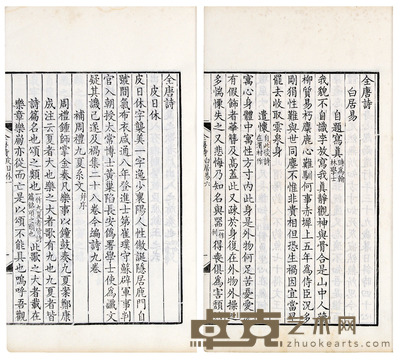 全唐詩
白居易
自題寫真 時為翰林學士
我貌不自識李放寫我真靜觀神與骨合是山中人蒲
柳質易朽麋鹿心難馴何事赤墀上五年為侍臣況多
剛狷性難與世同塵不惟非貴相但恐生禍因宜當早
罷去收取雲泉身
遣懷 自此後詩在渭村作
寓心身體中寓性方寸內此身是外物何足苦憂愛況
有假飾者華簪及高蓋此又疎於身復在外物外操之
多惴慄失之又悲悔乃知名與器得喪俱為害頹
全唐詩
皮日休
皮日休字襲美一字逸少襄陽人性傲誕隱居鹿門自
號間氣布衣咸通八年登進士第崔璞守蘇辟軍事判
官入朝授太常博士黃巢陷長安偽署學士使為讖文
疑其譏己遂及禍集二十八卷今編詩九卷
補周禮九夏系文 并序
周禮鍾師掌金奏凡樂事以鐘鼓奏九夏案鄭康
成注云夏者大也樂之大者歌有九也九夏者皆
詩篇名也頌之類也此歌之大者載在
樂章樂崩亦從而亡是以頌不能具也嗚呼吾觀
卓克艺术网
zhuokearts.com